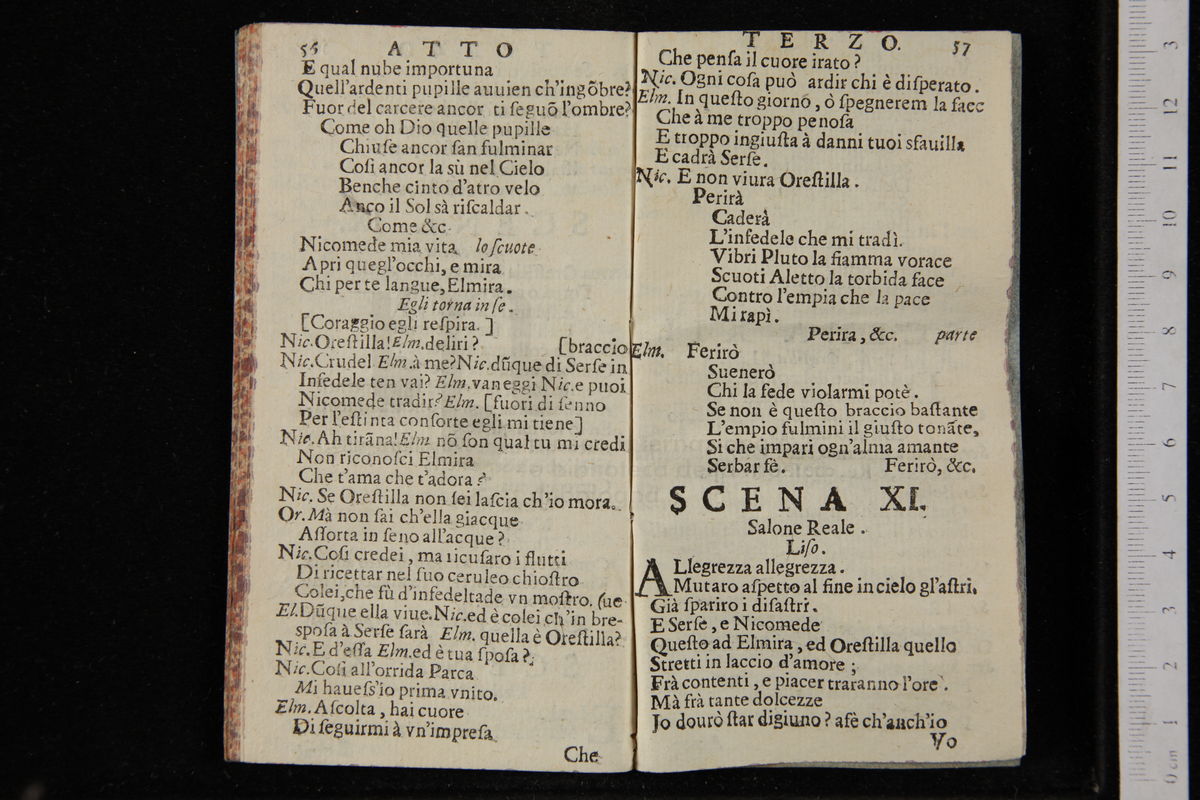 56 ATTO
E qual nube importuna
Quell'ardenti pupille auuien ch'ingõbre?
Fuor del carcere ancor ti ſeguõ l'ombre?
Come oh Dio quelle pupille
Chiuſe ancor ſan fulminar
Coſi ancor la sù nel Cielo
Benche cinto d'atro velo
Anco il Sol sà riſcaldar.
Come &c.
Nicomede mia vita lo ſcuote
Apri quegl'occhi, e mira
Chi per te langue, Elmira.
Egli torna in ſe.
[Coraggio egli reſpira.]
Nic. Oreſtilla! Elm. deliri? [braccio
Nic. Crudel Elm. à me? Nic. dũque di Serſe in
Infedele ten vai? Elm. vaneggi Nic. e puoi
Nicomede tradir? Elm. [fuori di ſenno
Per l'eſtinta conſorte egli mi tiene]
Nic. Ah tirãna! Elm nõ ſon qual tu mi credi
Non riconoſci Elmira
Che t'ama che t'adora?
Nic. Se Oreſtilla non ſei laſcia ch'io mora.
Or. Mà non ſai ch'ella giacque
Aſſorta in ſeno all'acque?
Nic. Coſi credei, ma ricuſaro i flutti
Di ricettar nel ſuo ceruleo chioſtro
Colei, che fù d'infedeltade vn moſtro. (ue
El. Dũque ella viue. Nic. ed è colei ch'in bre-
ſpoſa à Serſe ſarà Elm. quella è Oreſtilla?
Nic. E d'eſſa Elm. ed è tua ſpoſa?
Nic. Coſi all'orrida Parca
Mi haueſs'io prima vnito.
Elm. Aſcolta, hai cuore
Di ſeguirmi à vn'impreſa
Che
TERZO. 57
Che penſa il cuore irato?
Nic. Ogni coſa può ardir chi è diſperato.
Elm. In queſto giorno, ò ſpegnerem la face
Che à me troppo penoſa
E troppo ingiuſta à danni tuoi sfauilla
E cadrà Serſe.
Nic. E non viura Oreſtilla.
Perirà
Caderà
L'infedele che mi tradì.
Vibri Pluto la fiamma vorace
Scuoti Aletto la torbida face
Contro l'empia che la pace
Mi rapì.
Perira, &c. parte
Elm. Ferirò
Suenerò
Chi la fede violarmi potè.
Se non è queſto braccio baſtante
L'empio fulmini il giuſto tonãte,
Si che impari ogn'alma amante
Serbar fè. Ferirò, &c.
SCENA XI.
Salone Reale.
Liſo.
ALlegrezza allegrezza.
Mutaro aſpetto al fine in cielo gl'aſtri.
Già ſpariro i diſaſtri.
E Serſe, e Nicomede
Queſto ad Elmira, ed Oreſtilla quello
Stretti in laccio d'amore;
Frà contenti, e piacer traranno l'ore.
Mà frà tante dolcezze
Io dourò ſtar digiuno? afè ch'anch'io
Vo